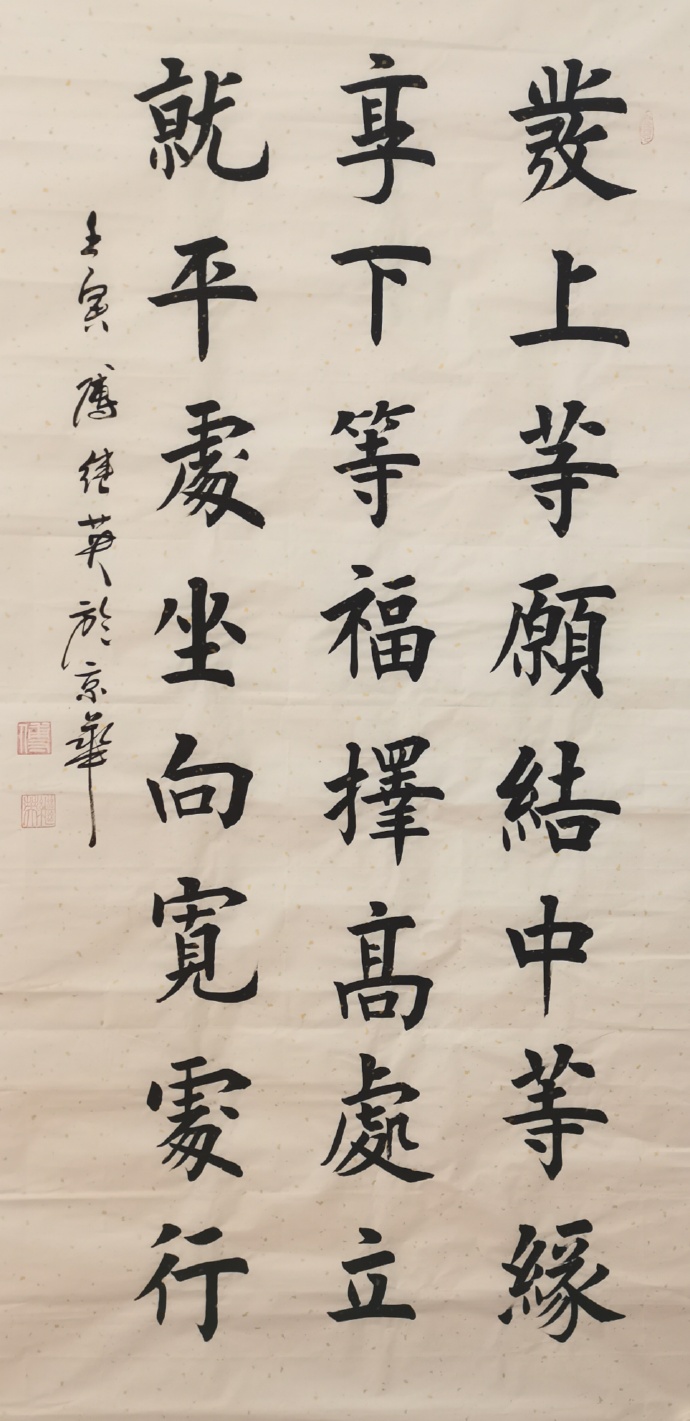 發上等願結中等緣
享下等福擇高處立
就平處坐向寬處行
壬寅傅继英於京華